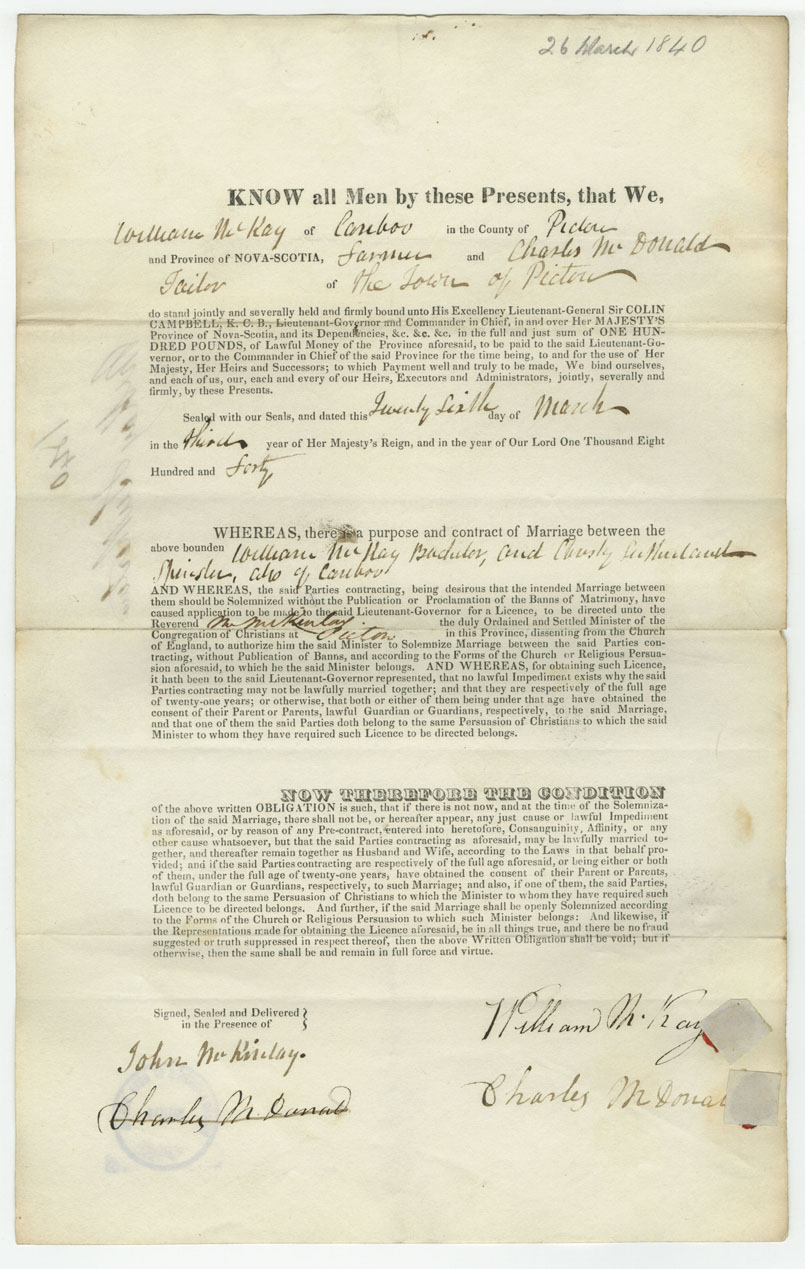 26 March 1840
KNOW all Men by these Presents, that We,
William McKay of Cariboo in the County of Pictou
and Province of NOVA-SCOTIA, Farmer and Charles McDonald
Tailor of the Town of Pictou
do stand jointly and severally held and firmly bound unto His Excellency Lieutenant-General Sir COLIN
CAMPBELL, K. C. B., Lieutenant-Governor and Commander in Chief, in and over Her MAJESTY'S
Province of Nova-Scotia, and its Dependencies, &c. &c. &c. in the full and just sum of ONE HUN-
DRED POUNDS, of Lawful Money of the Province aforesaid, to be paid to the said Lieutenant-Go-
vernor, or to the Commander in Chief of the said Province for the time being, to and for the use of Her
Majesty, Her Heirs and Successors; to which Payment well and truly to be made, We bind ourselves,
and each of us, our, each and every of our Heirs, Executors and Administrators, jointly, severally and
firmly, by these Presents.
Sealed with our Seals, and dated this Twenty Sixth day of March
in the third year of Her Majesty's Reign, and in the year of Our Lord One Thousand Eight
Hundred and Forty
WHEREAS, there is a purpose and contract of Marriage between the
above bounden William McKay Bachelor, and Christy Sutherland
Spinster, also of Cariboo
AND WHEREAS, the said Parties contracting, being desirous that the intended Marriage between
them should be Solemnized without the Publication or Proclamation of the Banns of Matrimony, have
caused application to be made to the said Lieutenant-Governor for a Licence, to be directed unto the
Reverend Mr McKinlay the duly Ordained and Settled Minister of the
Congregation of Christians at Pictou in this Province, dissenting from the Church
of England, to authorize him the said Minister to Solemnize Marriage between the said Parties con-
tracting, without Publication of Banns, and according to the Forms of the Church or Religious Persua-
sion aforesaid, to which he the said Minister belongs. AND WHEREAS, for obtaining such Licence,
it hath been to the said Lieutenant-Governor represented, that no lawful Impediment exists why the said
Parties contracting may not be lawfully married together; and that they are respectively of the full age
of twenty-one years; or otherwise, that both or either of them being under that age have obtained the
consent of their Parent or Parents, lawful Guardian or Guardians, respectively, to the said Marriage,
and that one of them the said Parties doth belong to the same Persuasion of Christians to which the said
Minister to whom they have required such Licence to be directed belongs.
NOW THEREFORE THE CONDITION
of the above written OBLIGATION is such, that if there is not now, and at the time of the Solemniza-
tion of the said Marriage, there shall not be, or hereafter appear, any just cause or lawful Impediment
as aforesaid, or by reason of any Pre-contract, entered into heretofore, Consanguinity, Affinity, or any
other cause whatsoever, but that the said Parties contracting as aforesaid, may be lawfully married to-
gether, and thereafter remain together as Husband and Wife, according to the Laws in that behalf pro-
vided; and if the said Parties contracting are respectively of the full age aforesaid, or being either or both
of them, under the full age of twenty-one years, have obtained the consent of their Parent or Parents,
lawful Guardian or Guardians, respectively, to such Marriage; and also, if one of them, the said Parties,
doth belong to the same Persuasion of Christians to which the Minister to whom they have required such
Licence to be directed belongs. And further, if the said Marriage shall be openly Solemnized according
to the Forms of the Church or Religious Persuasion to which such Minister belongs: And likewise, if
the Representations made for obtaining the Licence aforesaid, be in all things true, and there be no fraud
suggested or truth suppressed in respect thereof, then the above Written Obligation shall be void; but if
otherwise, then the same shall be and remain in full force and virtue.
Signed, Sealed and Delivered
in the Presence of
William McKay
John McKinlay.
Charles McDonal
Charles McDonald